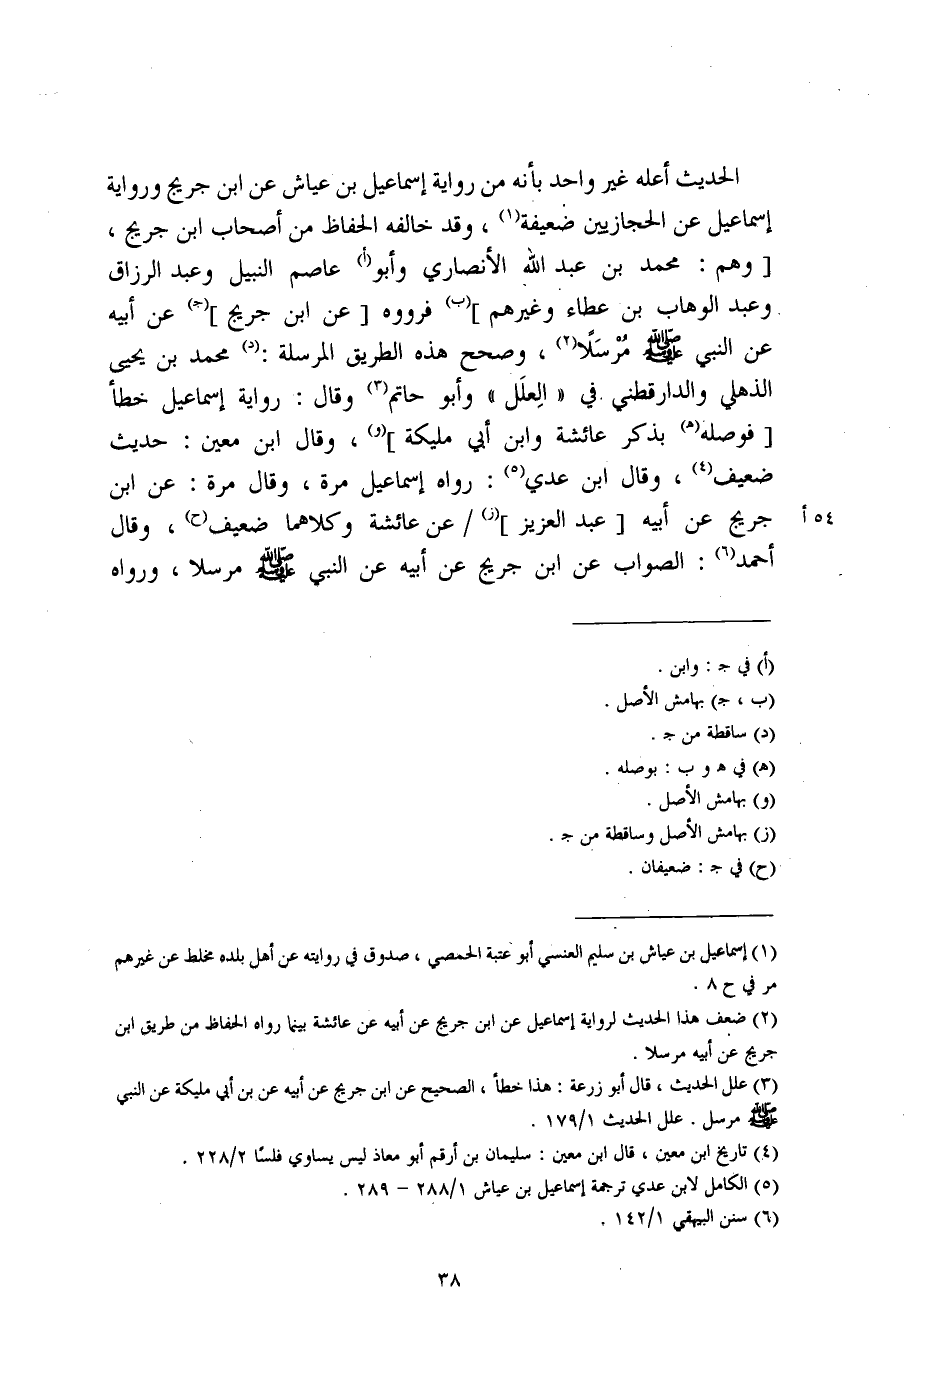 الحديث أعله غير واحد بأنه من رواية إسماعيل بن عياش عن ابن جريج ورواية
إسماعيل عن الحجازيين ضعيفة(١) ، وقد خالفه الحفاظ من أصحاب ابن جريج ،
[ وهم : محمد بن عبد الله الأنصاري وأبو(أ) عاصم النبيل وعبد الرزاق
وعبد الوهاب بن عطاء وغيرهم ](ب) فرووه [ عن ابن جريج ](جـ) عن أبيه
عن النبي ﷺ مُرْسَلًا(٢) ، وصحح هذه الطريق المرسلة :(د) محمد بن يحيى
الذهلي والدارقطني في « العِلَل » وأبو حاتم(٣) وقال : رواية إسماعيل خطأ
[ فوصله(هـ) بذكر عائشة وابن أبي مليكة ](و) ، وقال ابن معين : حديث
ضعيف(٤) ، وقال ابن عدي(٥) : رواه إسماعيل مرة ، وقال مرة : عن ابن
جريج عن أبيه [ عبد العزيز ](ز) / عن عائشة وكلاهما ضعيف(ح) ، وقال ٥٤ أ
أحمد(٦) : الصواب عن ابن جريج عن أبيه عن النبي ﷺ مرسلا ، ورواه
(أ) في جـ : وابن .
(ب ، جـ) بهامش الأصل .
(د) ساقطة من جـ .
(هـ) في هـ و ب : بوصله .
(و) بهامش الأصل .
(ز) بهامش الأصل وساقطة من جـ .
(ح) في جـ : ضعيفان .
(١) إسماعيل بن عياش بن سليم العنسي أبو عتبة الحمصي ، صدوق في روايته عن أهل بلده مخلط عن غيرهم
مر في ح ٨ .
(٢) ضعف هذا الحديث لرواية إسماعيل عن ابن جريج عن أبيه عن عائشة بينما رواه الحفاظ من طريق ابن
جريج عن أبيه مرسلا .
(٣) علل الحديث ، قال أبو زرعة : هذا خطأ ، الصحيح عن ابن جريج عن أبيه عن بن أبي مليكة عن النبي
ﷺ مرسل . علل الحديث ١/١٧٩ .
(٤) تاريخ ابن معين ، قال ابن معين : سليمان بن أرقم أبو معاذ ليس يساوي فلسًا ٢/٢٢٨ .
(٥) الكامل لابن عدي ترجمة إسماعيل بن عياش ١/٢٨٨ – ٢٨٩ .
(٦) سنن البيهقي ١/١٤٢ .
٣٨